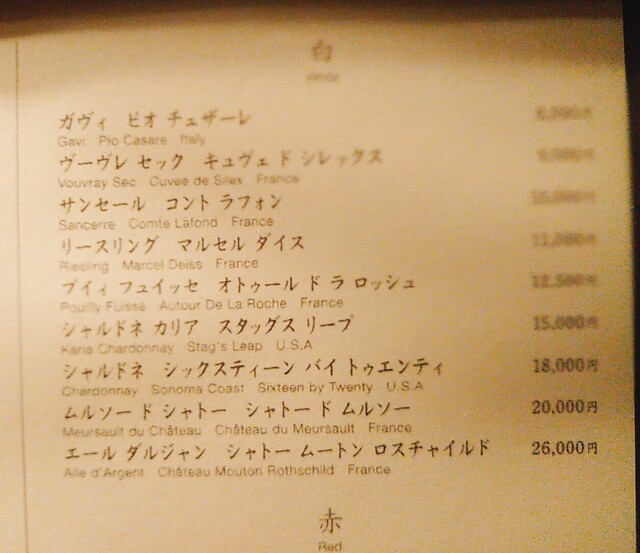 白
White
ガヴィ ピオ チェザーレ
Gavi Pio Casare Italy
ヴーヴレ セック キュヴェ ド シレックス 9,000円
Vouvray Sec Cuvee de Silex France
サンセール コント ラフォン 10,000円
Sancerre Comte Lafond France
リースリング マルセル ダイス 11,000円
Riesling Marcel Deiss France
プイィ フュイッセ オトゥール ド ラ ロッシュ 12,500円
Pouilly Fuisse Autour De La Roche France
シャルドネ カリア スタッグス リープ 15,000円
Karia Chardonnay Stag's Leap U.S.A
シャルドネ シックスティーン バイ トゥエンティ 18,000円
Chardonnay Sonoma Coast Sixteen by Twenty U.S.A
ムルソー ド シャトー シャトー ド ムルソー 20,000円
Meursault du Château Château du Meursault France
エール ダルジャン シャトー ムートン ロスチャイルド 26,000円
Aile d'Argent Château Mouton Rothschild France
赤
Red